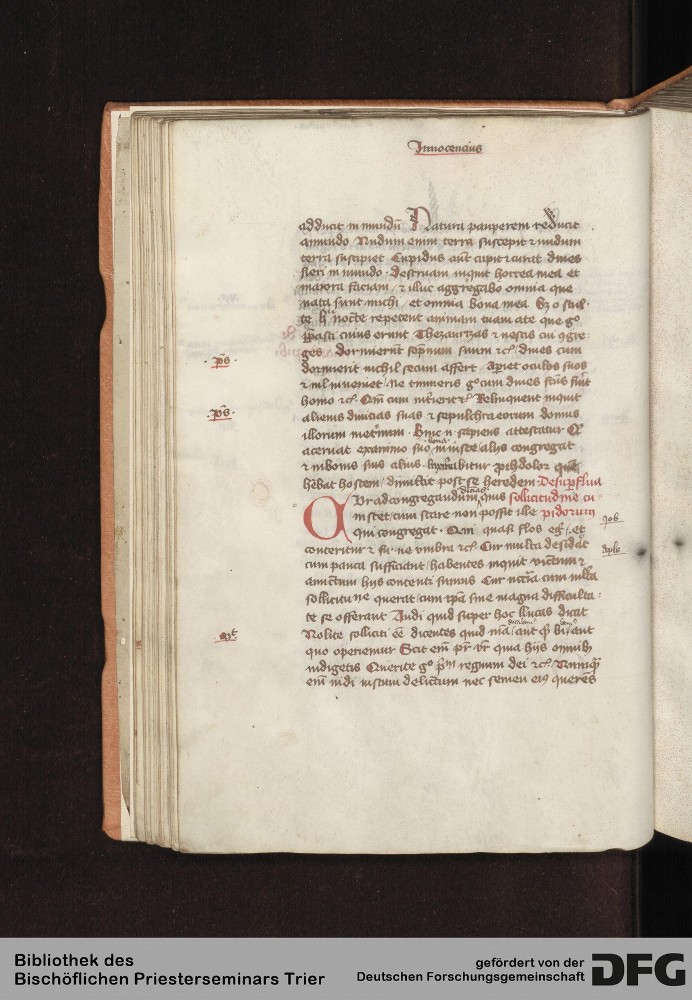 Innocencius
adducit in mundū Natura pauperem reducit
amundo Nudum enim terra suscepit ⁊ nudum
terra suscipiet Cupidus aūt cupit ⁊ curat diues
fieri in mundo · Destruam inquit horrea mea et
maiora faciam / ⁊ illuc aggregabo omnia que
nata sunt michi / et omnia bona mea
te hͣ nocte repetent animam tuam a te que gͦ
pasti cuius erunt Thezaurizas ⁊ nescis cui ꝯgre
ges dormierunt sompnum suum ⁊cͭ / diues cum
· pͦs ·
dormierit nichil secum affert / Aperiet oculos suos
⁊ nil inueniet / ne timueris gͦ cum diues fcūs fuit
homo ⁊cͭ · Qm̄ cum ⁊cͭ Relinquent inquit
· pͦs ·
alienis diuicias suas ⁊ sepulchra eorum domus
illorum ineternum · hinc sapiens attestatur Qͥ
aceruat exanimo suo iniuste / alijs congregat
bona
⁊ inbonis suis alius
hēbat hostem / dimittit post se heredem Desuperflua
Cur ad congregandum quis sollicitudine cu
diuicias
instet / cum stare non possit ille pidorum
Job
qui congregat · Qm̄ quasi flos egͬ / et
conteritur ⁊ ne vmbra ⁊cͭ Cur multa desidāt
aplꝰ
cum pauca sufficiant / habentes inquit victum ⁊
amictum hijs contenti sumus Cur cum multa
sollicitu ne querat / cum ipā sine magna difficulta
te se offerant Audi quid super hoc Lucas dicat
mͭ
Nolite solliciti eē dicentes quid / aut
quo operiemur Scit em̄ pr̄ vr̄ quia hijs omnibꝫ
indigetis Querite gͦ pͥm regnum dei ⁊cͭ Nunqͣ
em̄ uidi iustum delictum nec semen eiꝰ querēs
Bibliothek des
Bischöflichen Priesterseminars Trier
gefördert von der
Deutschen Forschungsgemeinschaft
DFG